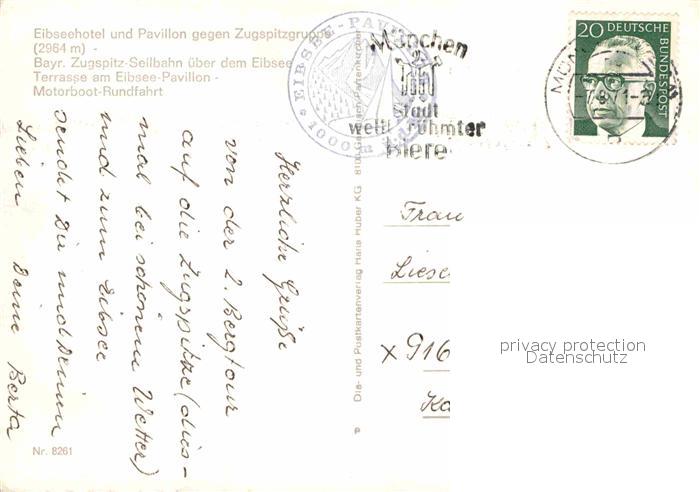 Eibseehotel und Pavillon gegen Zugspitzgruppe
(2964 m) -
Bayr. Zugspitz-Seilbahn über dem Eibsee
Terrasse am Eibsee-Pavillon -
Motorboot-Rundfahrt
EIBSEE-PAV
1000 m
München
Stadt
weltberühmter
Biere
20 DEUTSCHE
BUNDESPOST
Herzliche Grüße
von der 2. Bergtour
auf die Zugspitze (dies-
mal bei schönem Wetter)
und zum Eibsee
sendet Dir und Deinen
Lieben Deine Berta
Dia- und Postkartenverlag Hans Huber KG 8100 Garmisch-Partenkirchen
Frau
Liese
x 916
Ka
privacy protection
Datenschutz
Nr. 8261